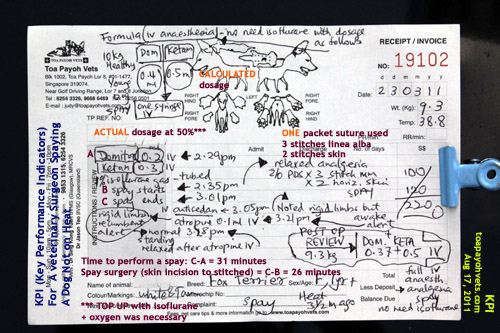 Formula (iv anaesthesia) - no need isoflurane with dosage
as follows
10kg
Healthy
Young
Dom
Ketam
0.4
0.5ml
One syringe
IV
CALCULATED
dosage
Toa Payoh Vets
Blk 1002, Toa Payoh Lor 8, #01-1477,
Singapore 319074.
Near Golf Driving Range, Lor 7 and 8 Junction
Tel: 6254 3326, 9668 6469
E-mail: judy@toapayohvets.com
TP REF. NO:
RIGHT
FORE
LEFT
RIGHT
HIND
RIGHT
FORE
LEFT
RIGHT
HIND
RECEIPT / INVOICE
NO: 19102
d d m m y y
DATE: 230311
Wt. (Kg): 9.3
Temp: 38.8
PR/min:
RR/min:
ACTUAL dosage at 50%***
ONE packet suture used
3 stitches linea alba
2 stitches skin
No. of days
S$
Admit
Discharge
INSTRUCTIONS / REVIEW
A Domitor 0.2 IV 2.29pm
Ketam 0.3 IV
isoflurane gas - tubed
B spay starts 2.35pm
C spay ends 3.01pm
relaxed analgesia
2/0 PDS x 3 stitch mm
x 2 horiz. skin
spay
100
120
220
iv antisedan - 3.05pm (Noted rigid limbs but
rigid limbs atropine 0.1ml IV 3.21pm awake
recumbent alert
alert normal 3.28pm
standing
relaxed after atropine iv
POST OP
REVIEW
9.3kg
DOM. KETA
0.37 + 0.5 IV
Time to perform a spay: C-A = 31 minutes
Spay surgery (skin incision to stitched) = C-B = 26 minutes
Name of animal: Fox Terrier Sex/Age: F, 1yr+
Colour/Markings: white & Ownership No:
Complaint: Spay Heat
3½ m ago
Total
Less Deposit
Balance Due
full iv
anaesth
analgesia
spay
no need isoflurane
*** TOP UP with isoflurane
+ oxygen was necessary
Free pet care tips & more information go to www.toapayohvets.com
KPI (Key Performance Indicators)
For A Veterinary Surgeon Spaying
A Dog Not on Heat
toapayohvets.com
Aug 17, 2011
KPI